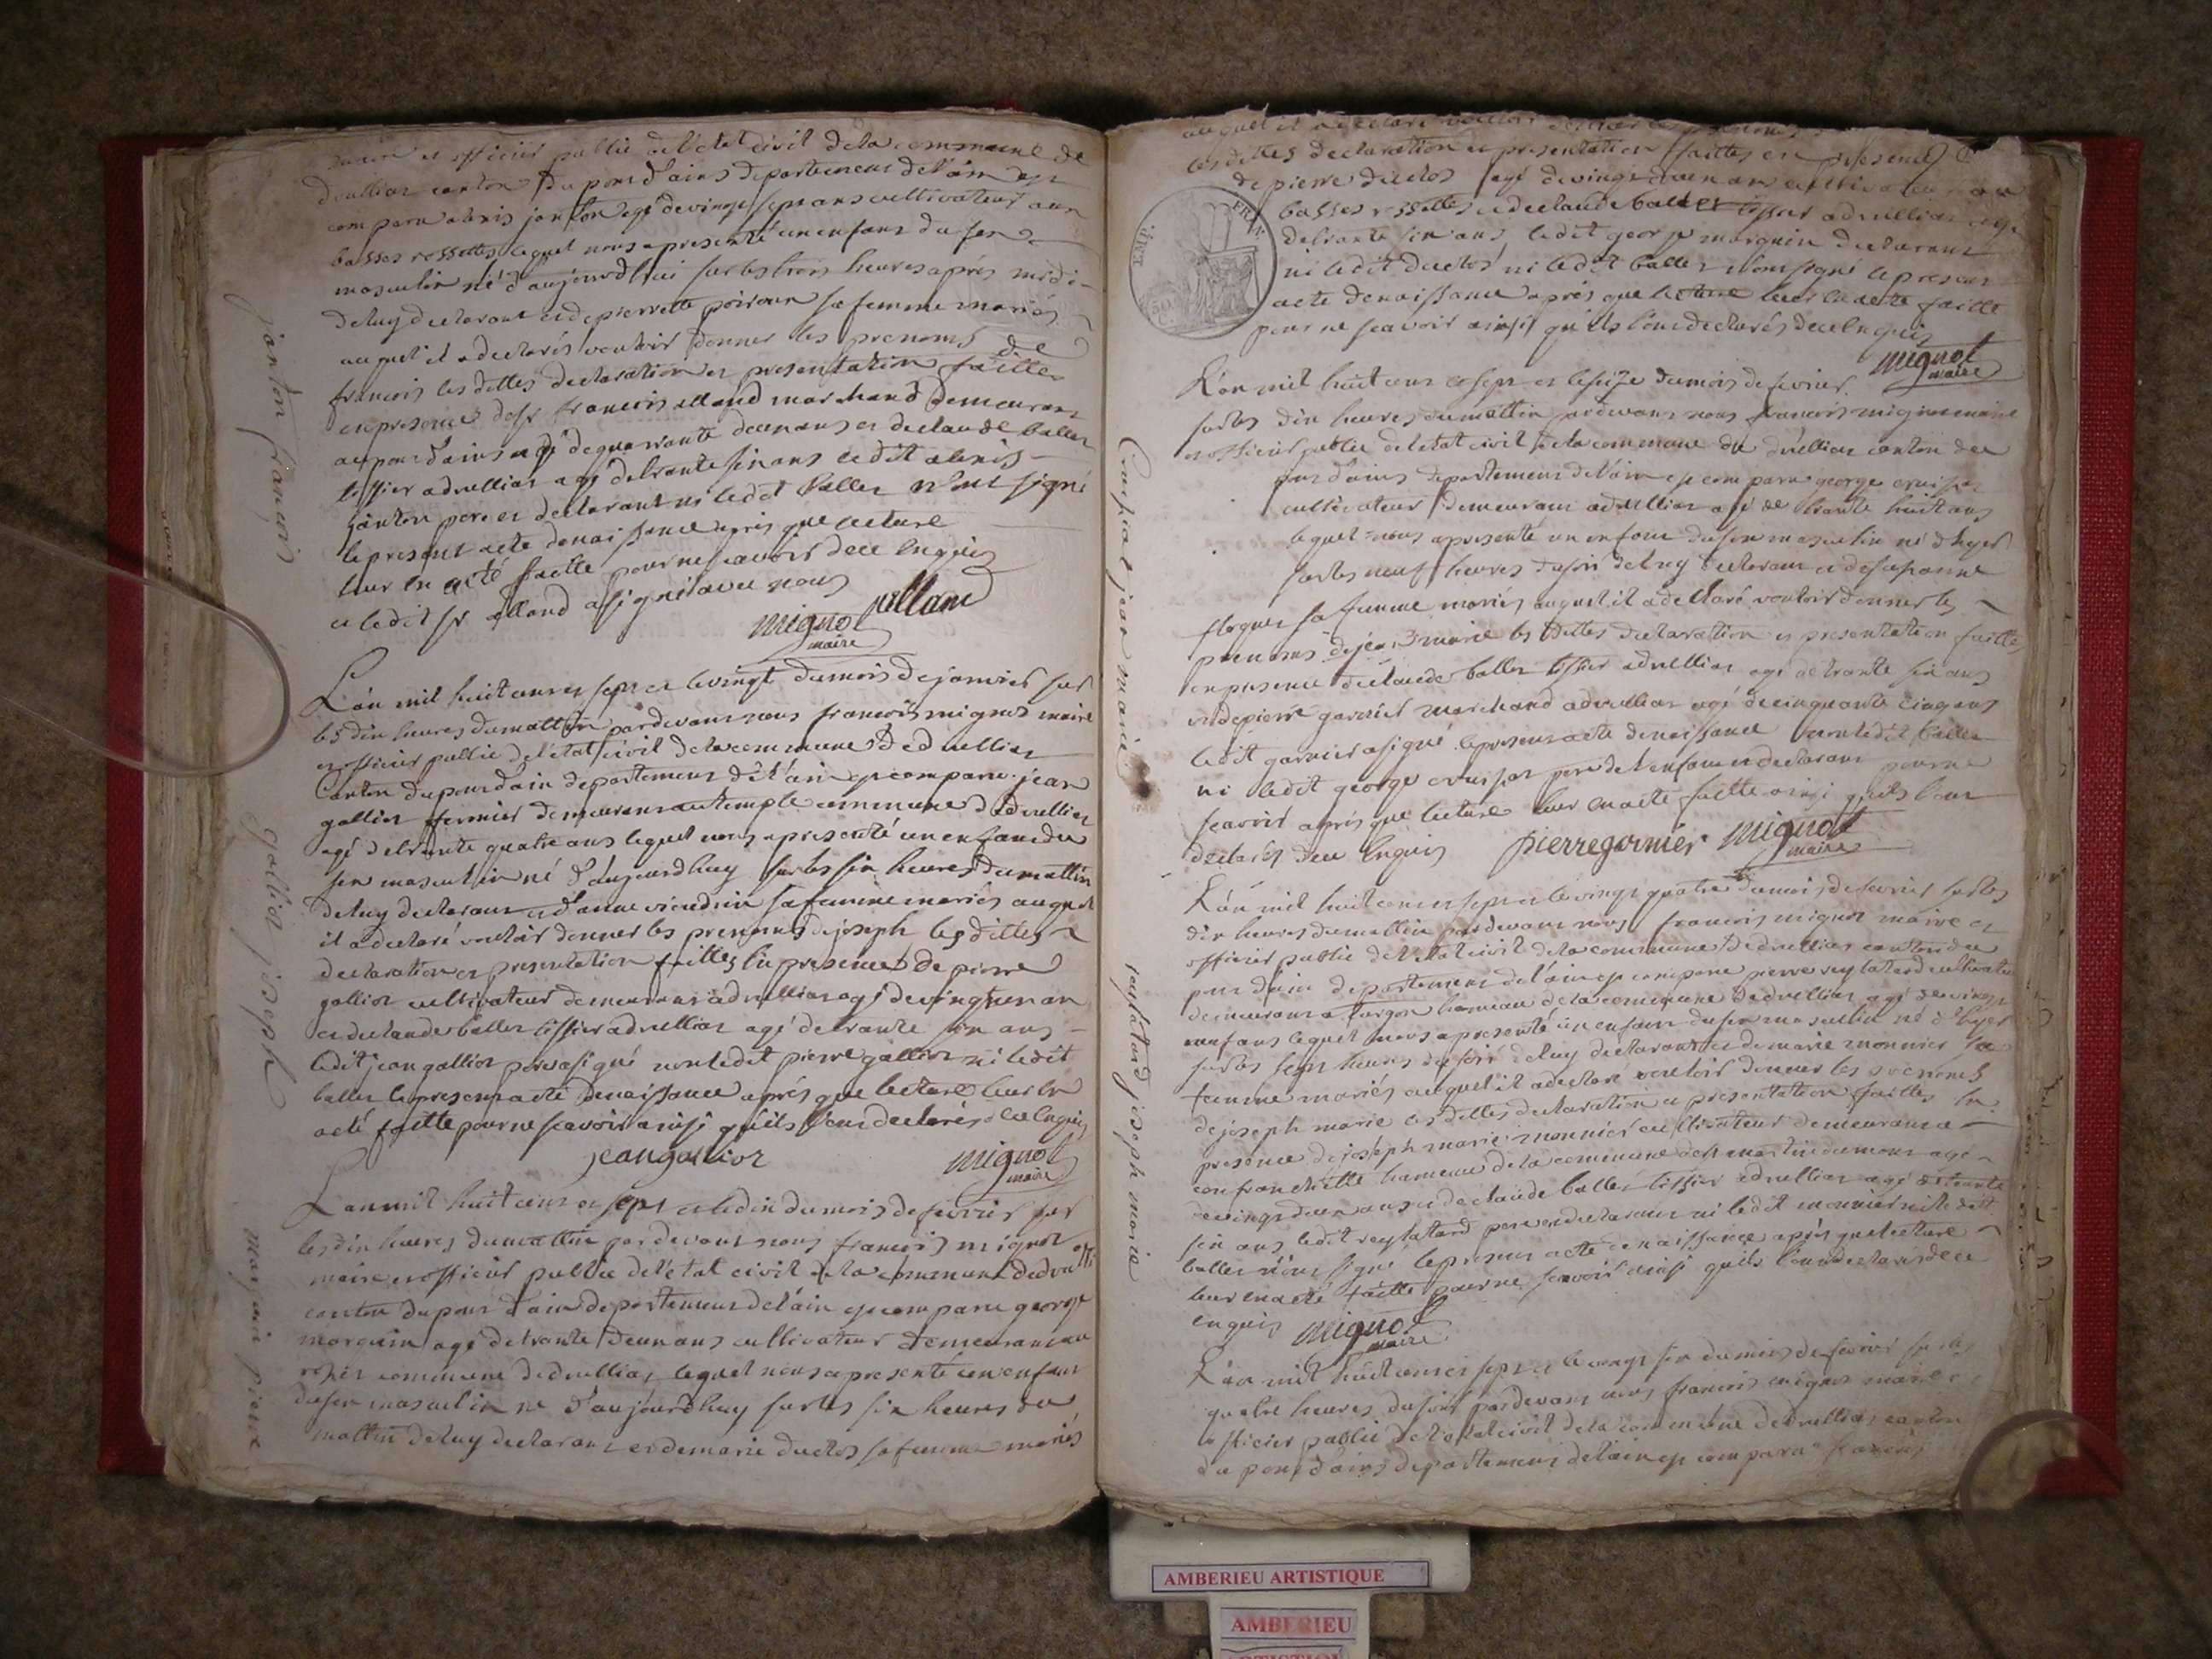 maire et officier public de l'état civil de la commune de
druillias canton du pont d'ains departement de l'ain est
comparu alexis janton agé de vingt sept ans cultivateur aux
basses rossettes lequel nous a presenté un enfant du sexe
masculin né d'aujourd'hui sur les trois heures après midi
de luy declarant et de pierrette poiroux sa femme mariés
auquel il a declarés vouloir donner les prenoms de
francois les dittes declaration et presentation faittes
en presence de sr francois alland marchand demeurant
au pont d'ains agé de quarrante deux ans et de claude ballet
tissier a druillias agé de trante six ans le dit alexis
janton pere et declarant ni le dit ballet n'ont signé
le present acte de naissance après que lecture
leur en a eté faitte pour ne scavoir de ce enquis
et le dit sr alland a signé avec nous
mignot alland
maire
L'an mil huit cent et sept et le vingt du mois de janvier sur
les dix heures du mattin par devant nous francois mignot maire
et officier public de l'état civil de la commune de druillias
Canton du pont d'ain departement de l'ain est comparu jean
galliot fermier demeurant au temple commune de druillias
agé de trante quatre ans lequel nous a presenté un enfant du
sexe masculin né d'aujourdhuy sur les six heures du mattin
de luy declarant et d'anne sa femme mariés auquel
il a declaré vouloir donner les prenoms de joseph les dittes
declaration et presentation faittes en presence de pierre
galliot cultivateur demeurant a druillias agé de vingt un an
et de claude ballet tissier a druillias agé de trante six ans
le dit jean galliot pere a signé non le dit pierre galliot ni le dit
ballet le present acte de naissance après que lecture leur en
a eté faitte pour ne scavoir ainsi qu'ils l'ont declarés de ce enquis
jean galliot mignot
maire
L'an mil huit cent et sept et le dix du mois de fevrier sur
les dix heures du mattin par devant nous francois mignot
maire et officier public de l'état civil de la commune de druillias
canton du pont d'ain departement de l'ain est comparu george
marguin agé de trante deux ans cultivateur demeurant au
commune de druillias lequel nous a presenté un enfant
du sexe masculin né d'aujourdhuy sur les six heures du
mattin de luy declarant et de marie duclos sa femme mariés
janton francois
galliot joseph
marguin pierre
auquel il a declaré vouloir donner les prenoms
de pierre les dittes declaration et presentation faittes en presence
de pierre duclos agé de vingt deux ans cultivateur aux
basses rossettes et de claude ballet tissier a druillias agé
de trante six ans, le dit george marguin declarant
ni le dit duclos ni le dit ballet n'ont signé le present
acte de naissance après que lecture leur en a eté faitte
pour ne scavoir ainsi qu'ils l'ont declarés de ce enquis
mignot
maire
TIMB. FRAN.
L'an mil huit cent et sept et le seize du mois de fevrier
sur les dix heures du mattin par devant nous francois mignot maire
et officier public de l'etat civil de la commune de druillias canton du
pont d'ains departement de l'ain est comparu george
cultivateur demeurant a druillias agé de trante huit ans
lequel nous a presenté un enfant du sexe masculin né d'hyer
sur les neuf heures du soir de luy declarant et de susanne
sa femme mariés auquel il a declaré vouloir donner les
prenoms de jean marie les dittes declaration et presentation faittes
en presence de claude ballet tissier a druillias agé de trante six ans
et de pierre garnier marchand a druillias agé de cinquante cinq ans
le dit garnier a signé le present acte de naissance non le dit ballet
ni le dit george pere de l'enfant et declarant pour ne
scavoir après que lecture leur en a eté faitte ainsi qu'ils l'ont
declarés de ce enquis pierre garnier mignot
maire
L'an mil huit cent et sept et le vingt quatre du mois de fevrier sur les
dix heures du mattin par devant nous francois mignot maire et
officier public de l'etat civil de la commune de druillias canton du
pont d'ain departement de l'ain est comparu pierre reylatard cultivateur
demeurant a turgon hameau de la commune de druillias agé de vingt
neuf ans lequel nous a presenté un enfant du sexe masculin né d'hyer
sur les sept heures du soir de luy declarant et de marie monnier sa
femme mariés auquel il a declaré vouloir donner les prenoms
de joseph marie les dittes declaration et presentation faittes en
presence de joseph marie monnier cultivateur demeurant a
confranchette hameau de la commune de st martin du mont agé
de vingt deux ans et de claude ballet tissier a druillias agé de trante
six ans le dit reylatard pere et declarant ni le dit monnier ni le dit
ballet n'ont signé le present acte de naissance après que lecture
leur en a eté faitte pour ne scavoir ainsi qu'ils l'ont declarés de ce
enquis mignot
maire
L'an mil huit cent et sept et le vingt six du mois de fevrier sur les
quatre heures du soir par devant nous francois mignot maire et
officier public de l'etat civil de la commune de druillias canton
du pont d'ains departement de l'ain est comparu francois
jean marie
reylatard joseph marie
AMBERIEU ARTISTIQUE
AMBERIEU
ARTISTIQUE